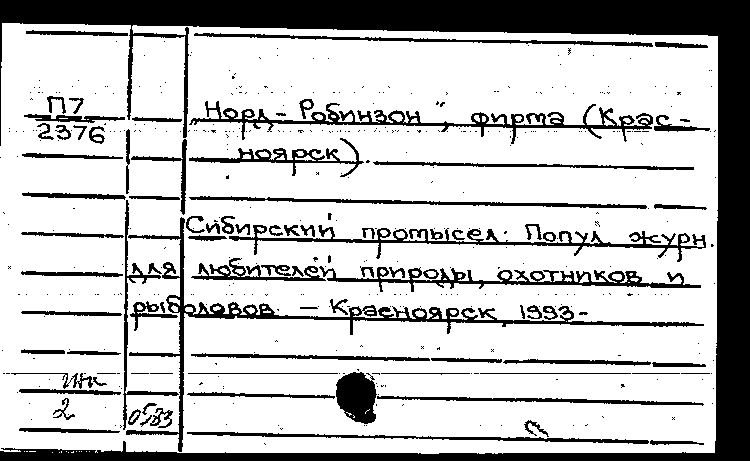 П7
2376
„Норд-Робинзон", фирма (Крас-
ноярск)
Сибирский промысел: Попул. журн.
для любителей природы, охотников и
рыболовов. — Красноярск, 1993-
2 0583